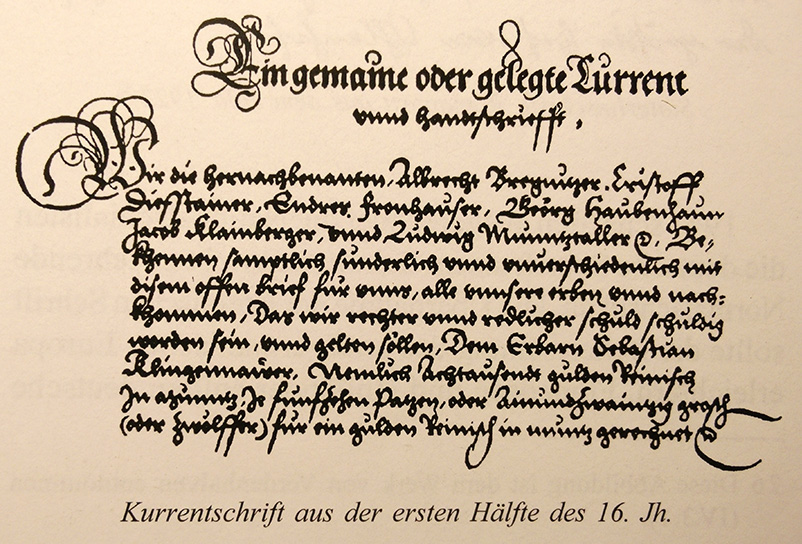 Ein gemaine oder gelegte Current
vnnd handtschriefft,
Wir die hernachbenanten, Albrecht Bregnitzer, Cristoff
Diesstainer, Endres Fronhauser, Georg Haubenhaum
Jacob Klainberger, vnnd Ludwig Munntztaller &. Be-
khennen samptlich sunderlich vnnd vnuerschiedenlich mit
disem offen brief für vnns, alle vnnsere erben vnnd nach-
khommen, Das wir rechter vnnd redlicher schuld schuldig
worden sein, vnnd gelten söllen, Dem Erbarn Sebastian
Klingenmaüer, Nemlich Achtausendt gulden Reinisch
In Je funfzehen Patzen, oder Ainundzwaintzig grosch
(oder zwölffer) für ein gulden Reinisch in muntz gerechnet
Kurrentschrift aus der ersten Hälfte des 16. Jh.